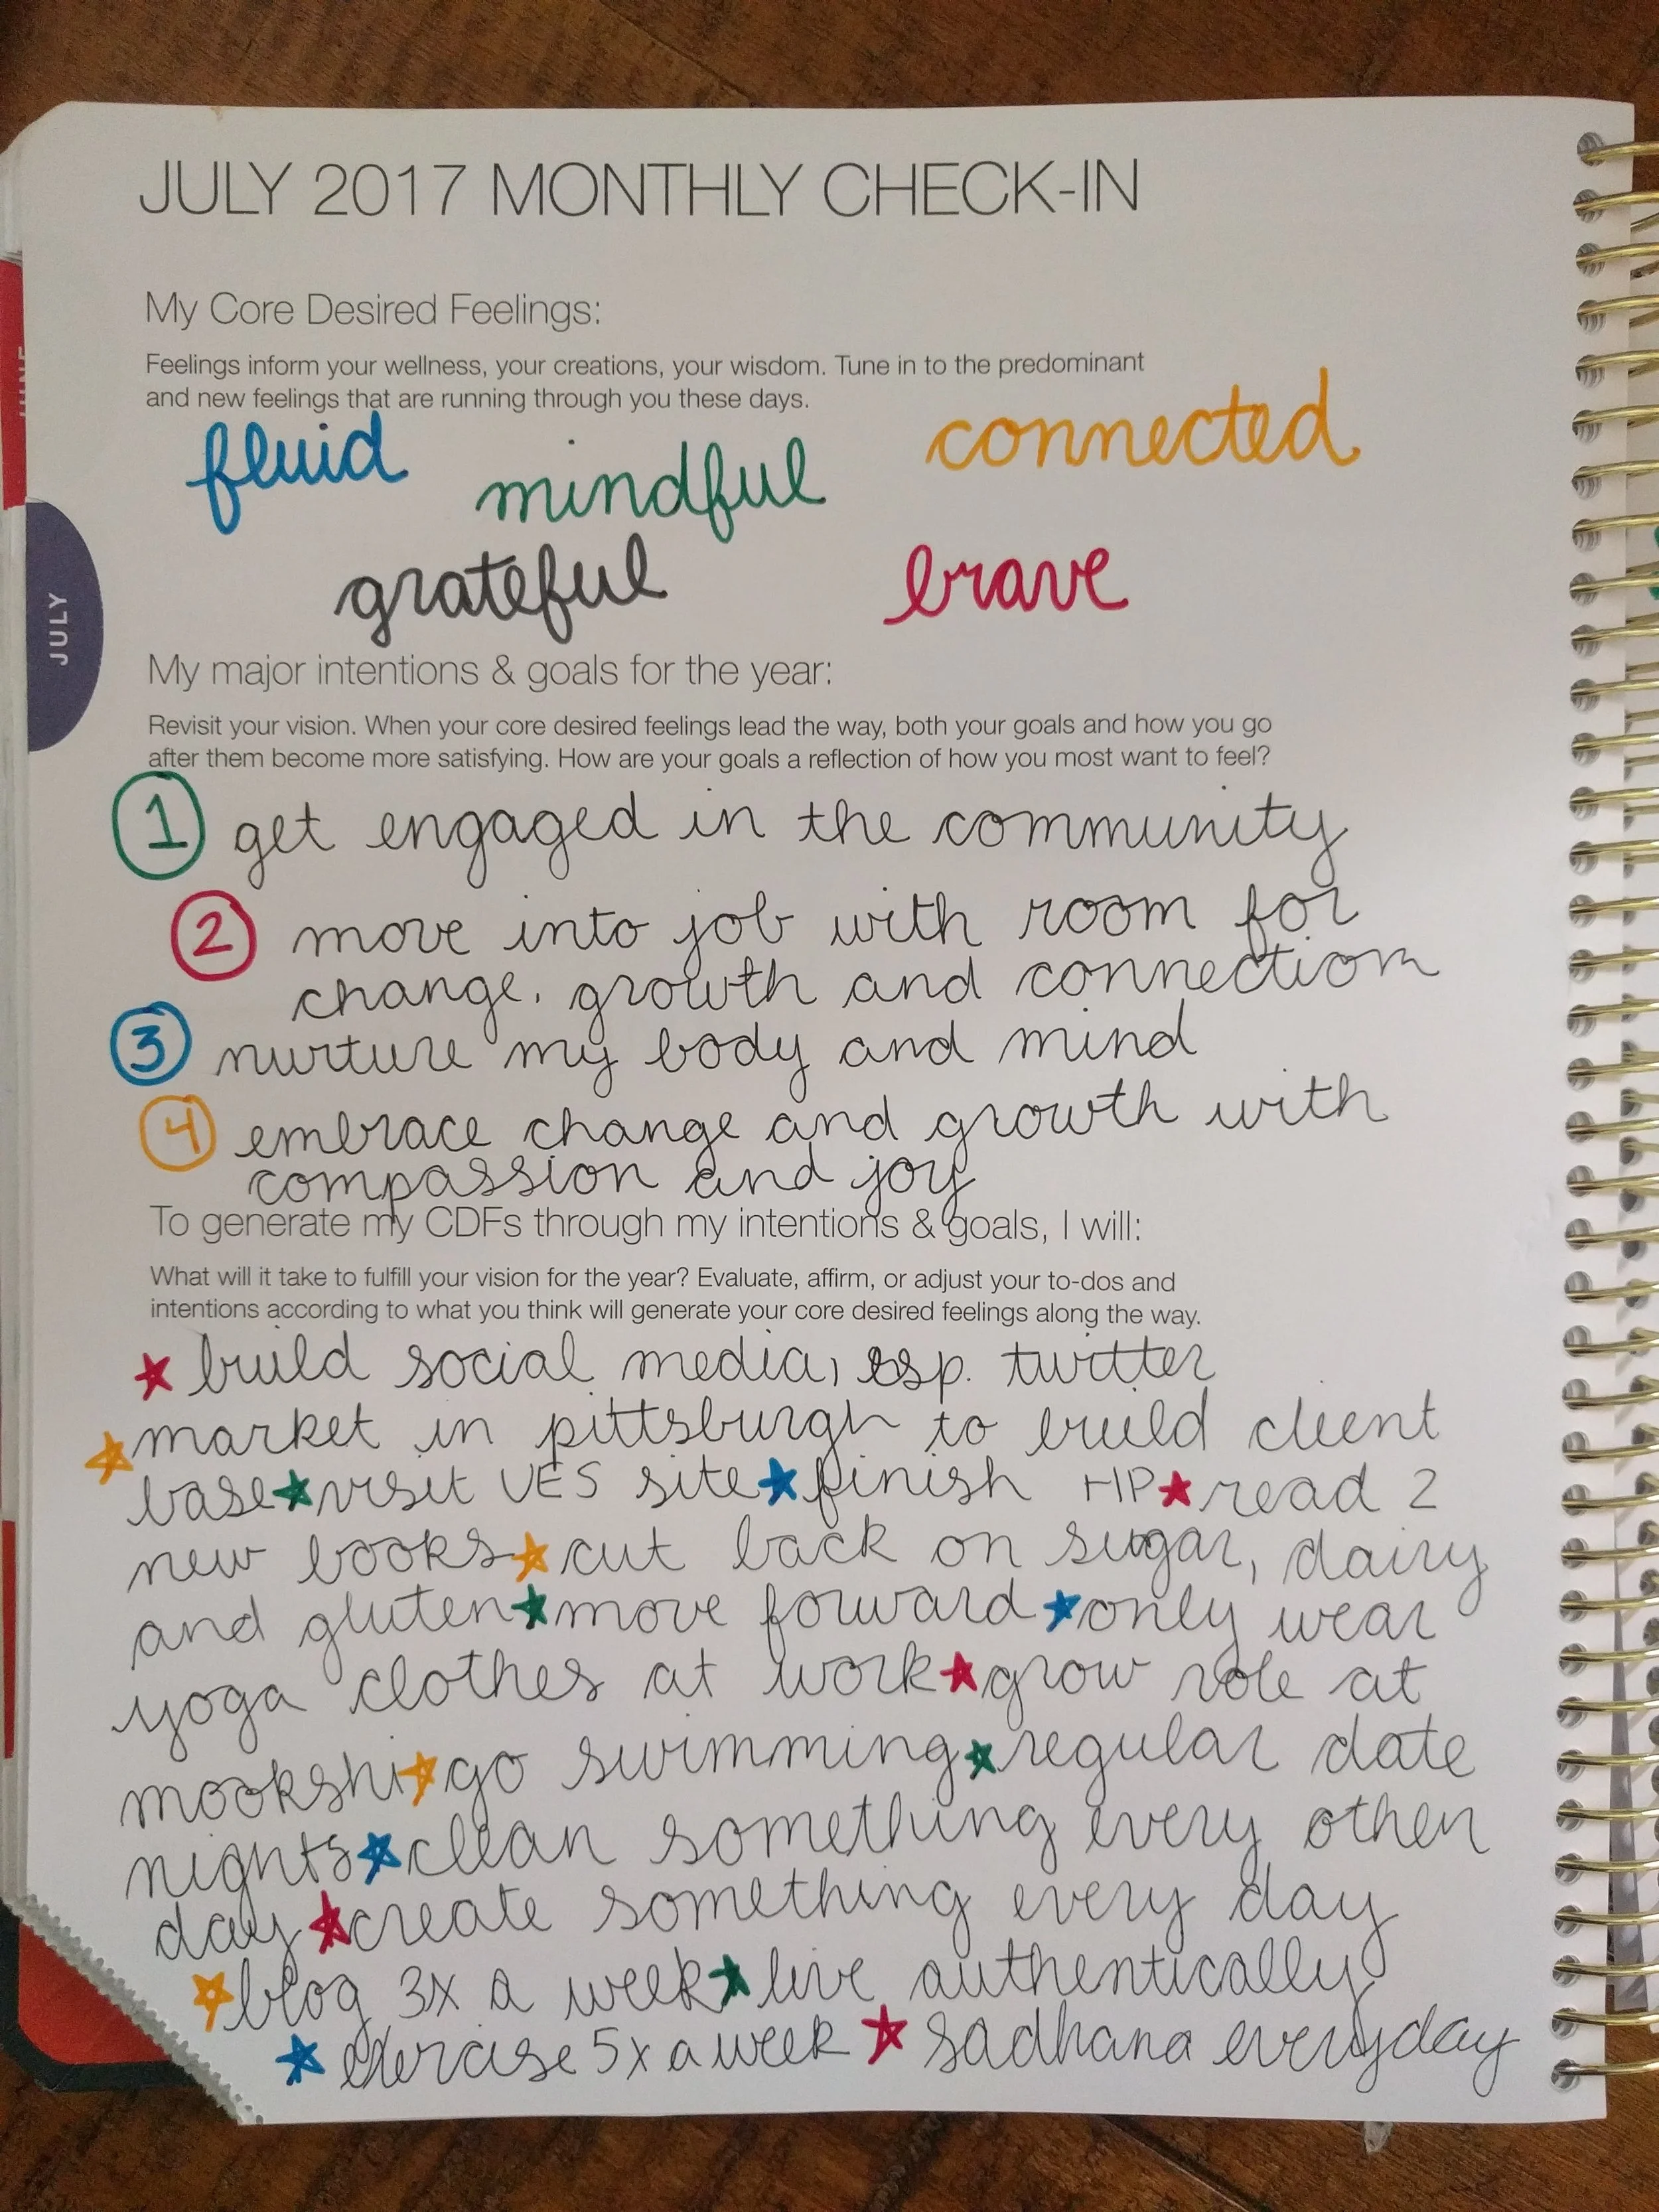 JULY 2017 MONTHLY CHECK-IN
My Core Desired Feelings:
Feelings inform your wellness, your creations, your wisdom. Tune in to the predominant
and new feelings that are running through you these days.
fluid mindful connected
grateful brave
JUNE
JULY
My major intentions & goals for the year:
Revisit your vision. When your core desired feelings lead the way, both your goals and how you go
after them become more satisfying. How are your goals a reflection of how you most want to feel?
1 get engaged in the community
2 move into job with room for
change, growth and connection
3 nurture my body and mind
4 embrace change and growth with
compassion and joy
To generate my CDFs through my intentions & goals, I will:
What will it take to fulfill your vision for the year? Evaluate, affirm, or adjust your to-dos and
intentions according to what you think will generate your core desired feelings along the way.
★ build social media, esp. twitter
★ market in pittsburgh to build client
base ★ visit VES site ★ finish HP ★ read 2
new books ★ cut back on sugar, dairy
and gluten ★ move forward ★ only wear
yoga clothes at work ★ grow role at
mookshi ★ go swimming ★ regular date
nights ★ clean something every other
day ★ create something every day
★ blog 3x a week ★ live authentically
★ exercise 5x a week ★ sadhana everyday